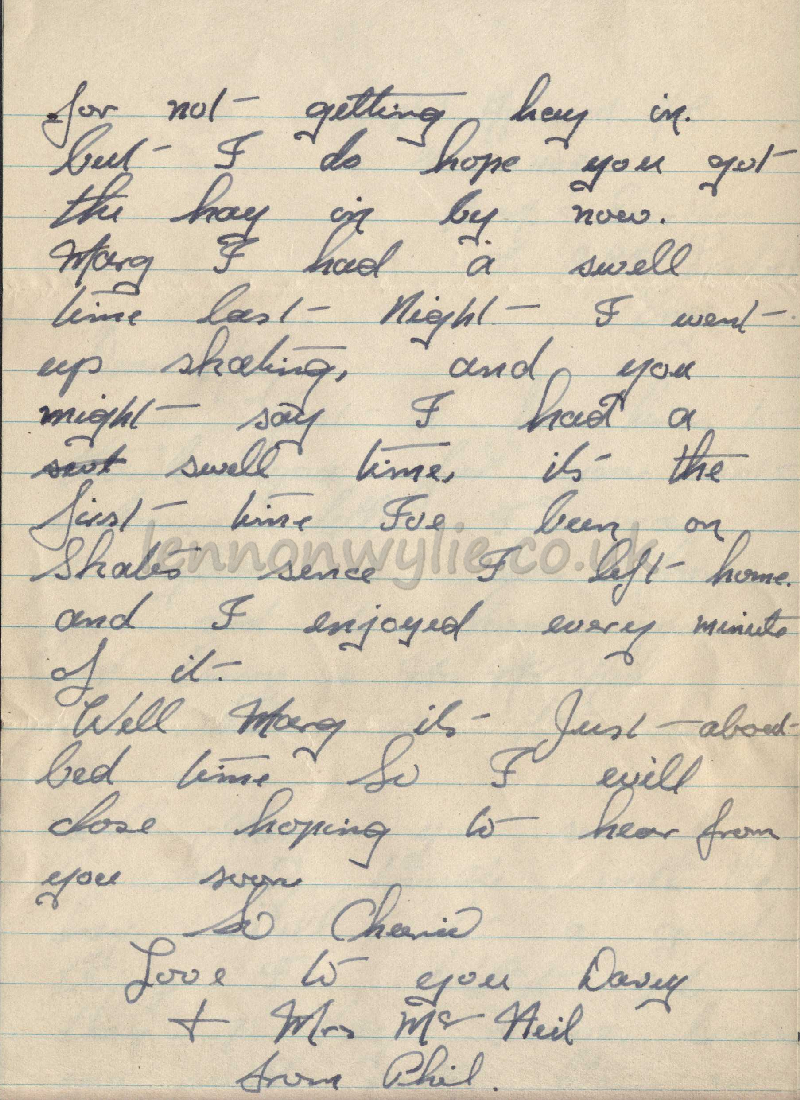 for not getting hay in.
but I do hope you got
the hay in by now.
Marg I had a swell
time last Night I went
up skating, and you
might say I had a
swell time, its the
first time Ive been on
Skates sence I left home.
and I enjoyed every minute
of it.
Well Marg its Just about
bed time So I will
close hoping to hear from
you soon
So Cheerio
Love to you Davey
+ Mrs Mc Neil
from Phil.
lennonwylie.co.uk